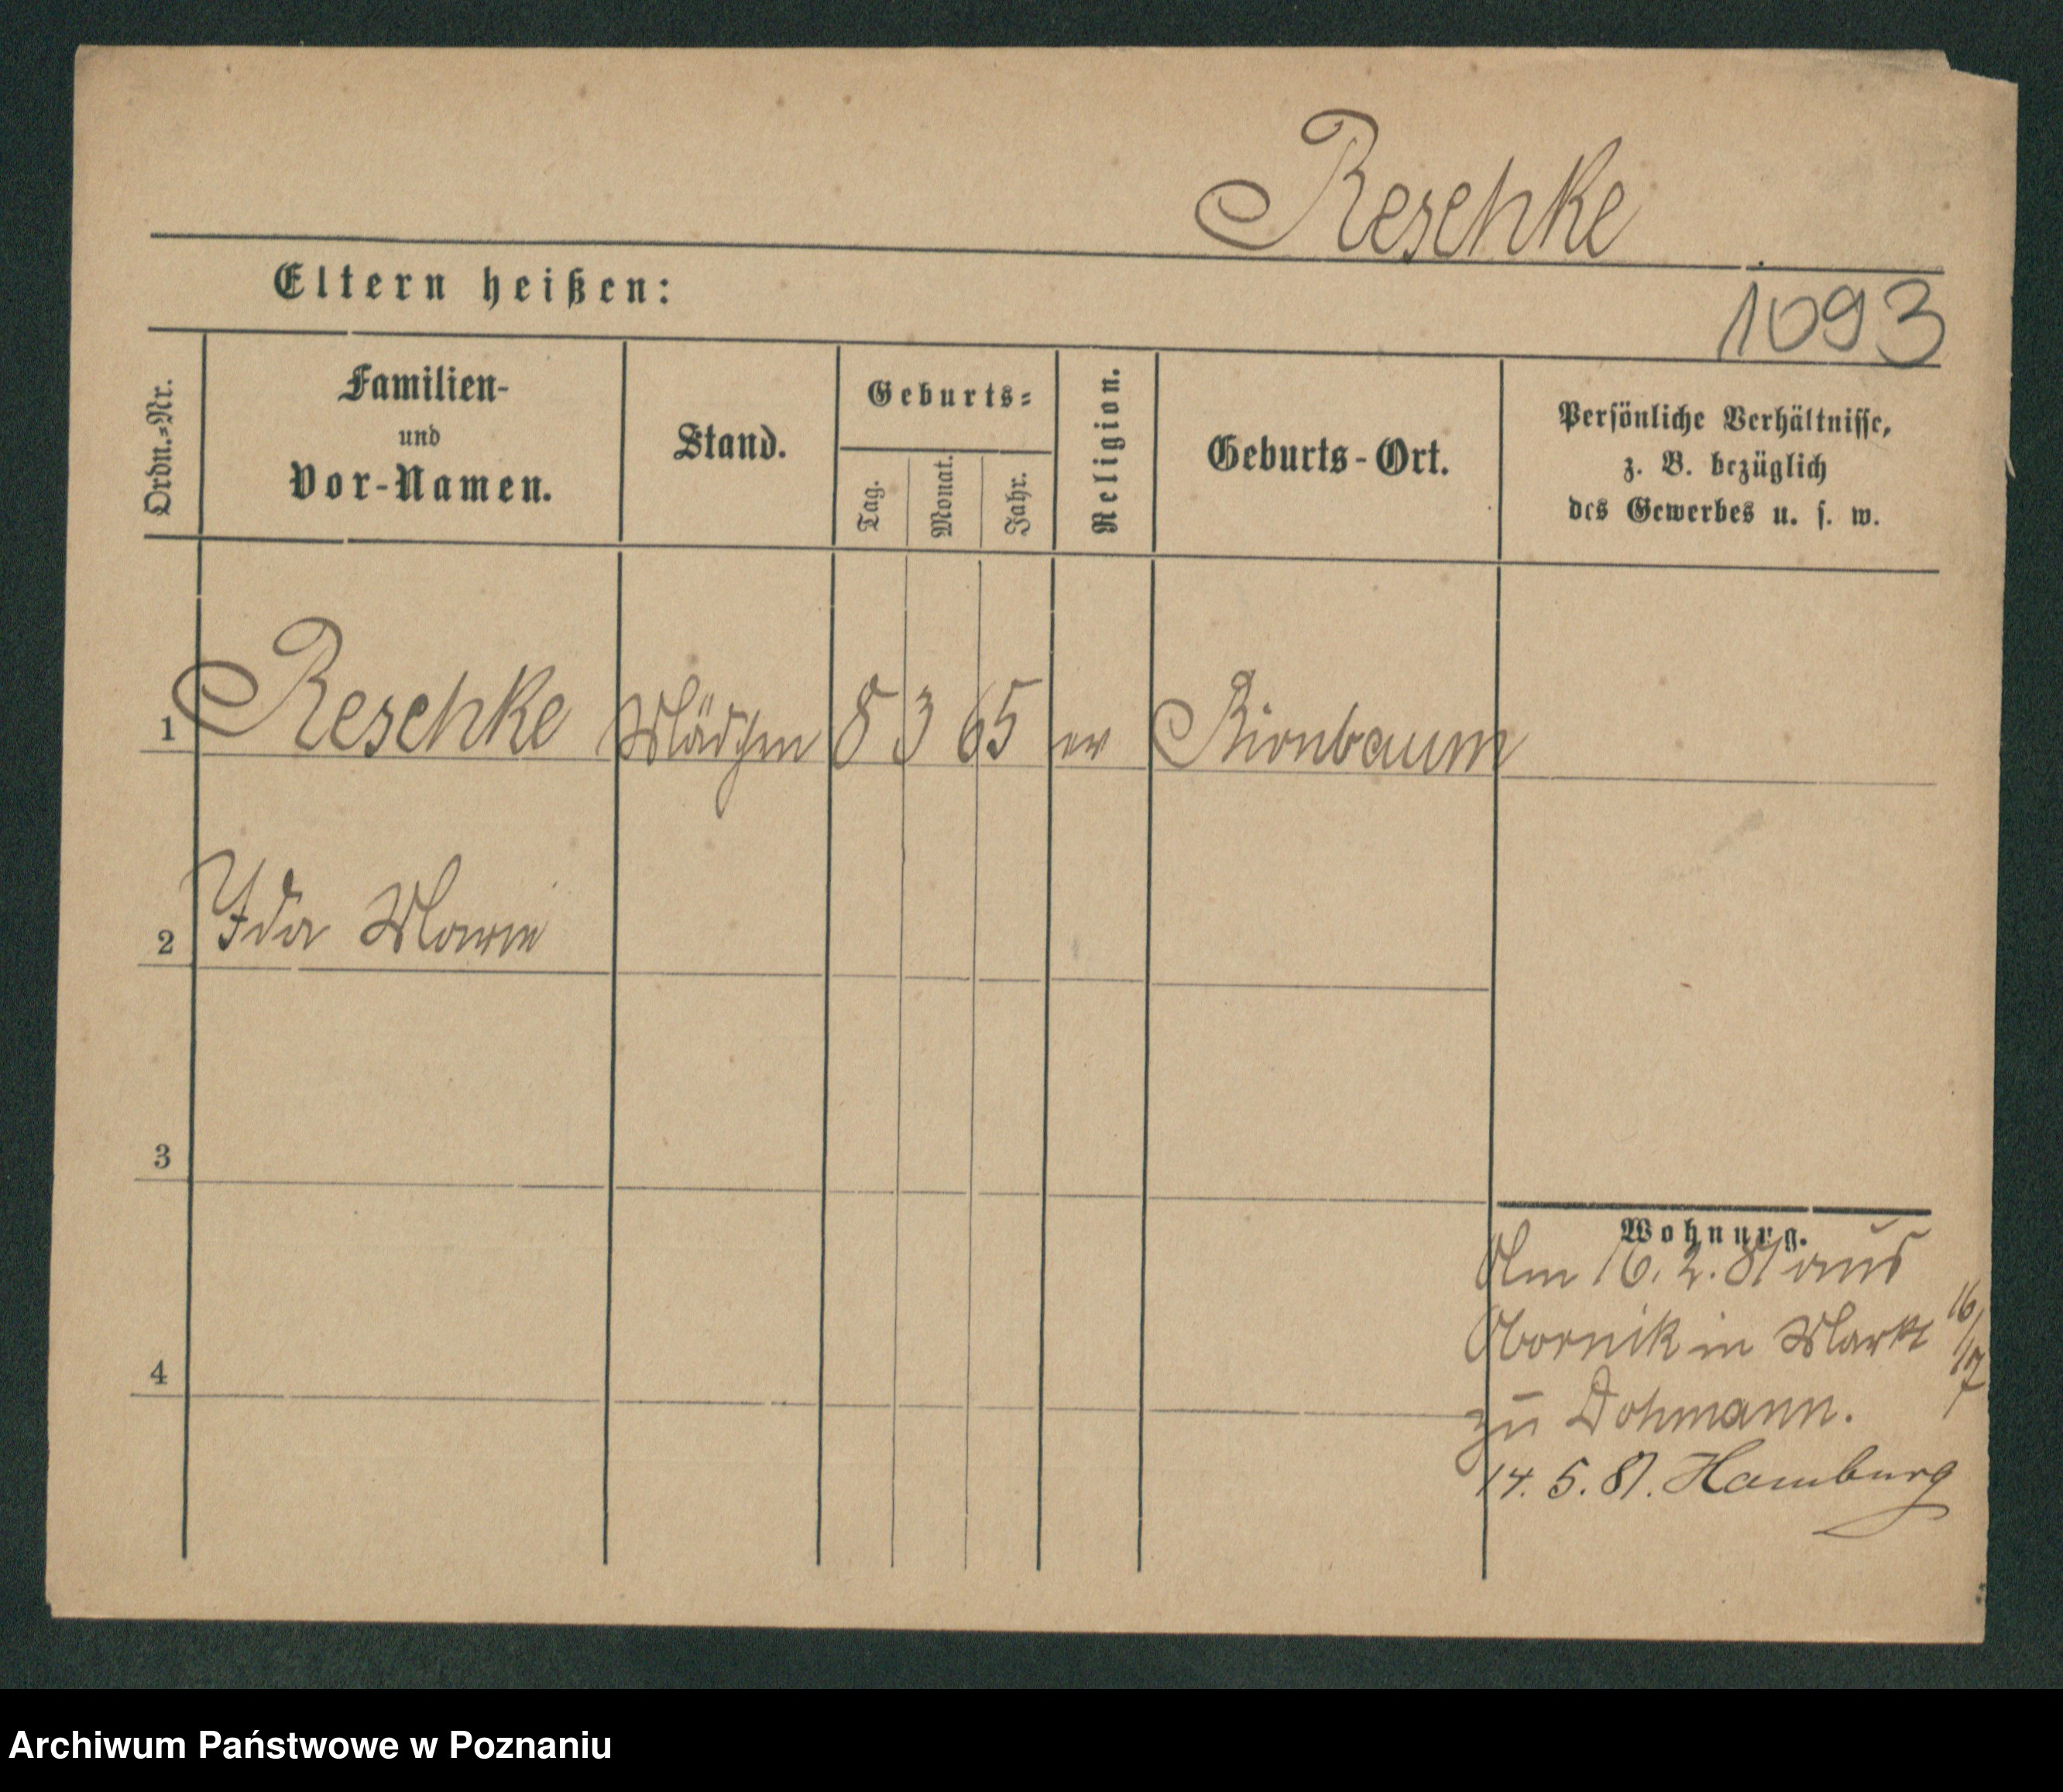 Reschke
Eltern heißen:
1093
Ordn.-Nr.
Familien-
und
Vor-Namen.
Stand.
Geburts-
Tag.
Monat.
Jahr.
Religion.
Geburts-Ort.
Persönliche Verhältnisse,
z. B. bezüglich
des Gewerbes u. s. w.
1 Reschke Mädchen 8 3 65 ev Birnbaum
2 Ida Marie
3
4
Wohnung.
Am 16. 2. 81 aus
Obornik in Markt 16/17
zu Dohmann.
14. 5. 81. Hamburg
Archiwum Państwowe w Poznaniu